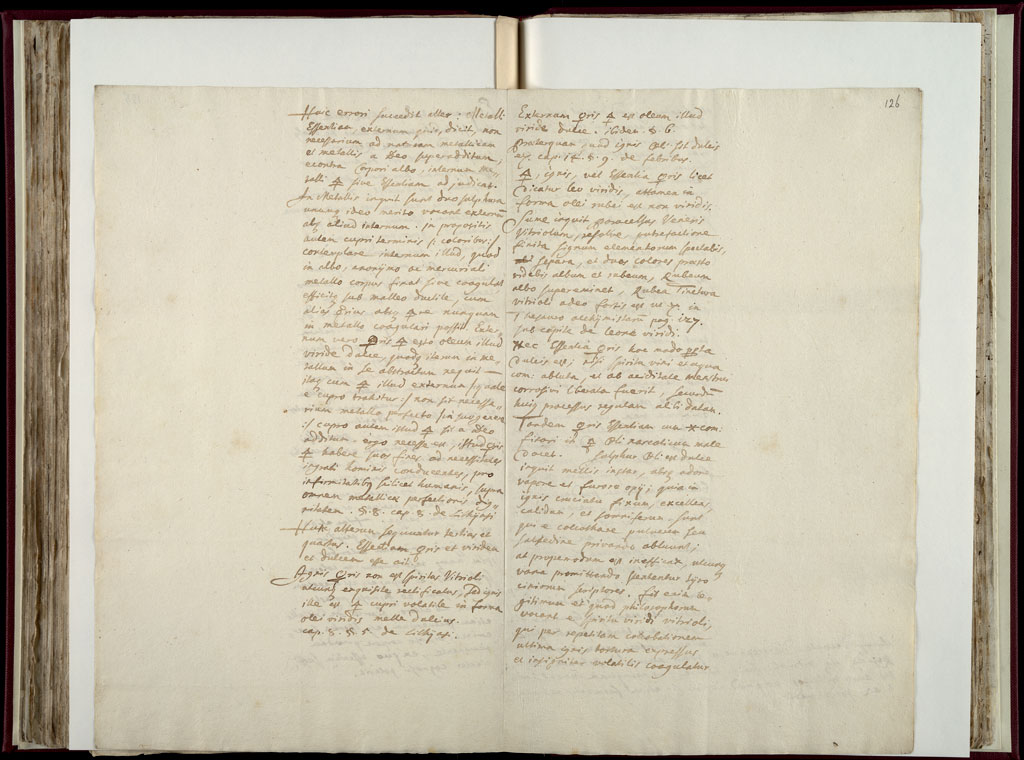 126
Huic errori succedit alter: Metalli
Essentiam, externum ♀ris, dicit, non
necessarium ad naturam metallicam
et metallis a Deo superadditum,
econtra corpori albo, internum me,,
talli 🜍 sive Essentiam adjudicat.
In Metallis inquit sunt duo sulphura
unum ideo merito vocant externū
abs aliud internum. in propositis
autem cupri terminis /: coloribus :/
contemplare internum illud, quod
in albo, anonymo ac mercuriali
metallo corpus fixat sive coagulat
efficitq sub malleo ductile, cum
alias ♀ius absq 🜍re nunquam
in metallo coagulari possit. Exter,,
num vero ♀ris 🜍 esto oleum illud
viride dulce, quodq iterum in me,,
tallum in se abstractum nequit
itaq cum 🜍 illud externum /: quale
e cupro trahitur :/ non sit necessa,,
rium metallo perfecto /: in suo genere
:/ cupro autem illud 🜍 sit a Deo
additum. ergo necesse est, istud ♀ris
🜍 habere suos fines ad necessitates
ingrati hominis conducentes, pro
infirmitatibq scilicet humanis, supra
omnem metallicæ perfectionis dig,,
nitatem. §. 8. cap. 8. de Lithiasi
Hunc alterum sequuntur tertius et
quartus. Essentiam ♀ris et viridem
et dulcem esse ait.
Ignis ♀ris non est spiritus Vitrioli
utcunq exquisite rectificatus, sed ignis
ille est 🜍 cupri volatile in forma
olei viridis melle dulcius.
cap. 8. §. 5. de Lithiasi.
Externum ♀ris 🜍 est oleum illud
viride dulce. ibidem. §. 6.
Præterquam, quod ignis ☿li sit dulcis
ex cap. 14. §. 9. de febribus.
🜍, ignis, vel Essentia ♀ris licet
dicatur leo viridis, attamen in
forma olei rubei est non viridis.
Sume inquit Paracelsus Veneris
Vitriolum, resolve, putrefactione
finita signum elementorum spectabis,
separa, et duos colores præsto
videbis album et rubeum, Rubeum
albo supereminet, Rubea Tinctura
vitrioli adeo fortis est ut in
Thesauro alchymistarum pag. 127.
sub capite de leone viridi.
Hec Essentia ♀ris hoc modo
dulcis est; nisi spiritu vini et aqua
com: abluta, et ab aciditate menstrui
corrosivi liberata fuerit, secundum
hujq processus regulam alibi datam.
Tandem ♀ris Essentiam cum com,,
fixori in ☿li narcoticum male
docet. Sulphur ☿li est dulce
inquit mellis instar, absq odore
vapore et furore opij; quia in
ignis cruciatu fixum, excellens,
calidum, et somniferum. Sunt
qui e colcothare pulverem seu
salsedine privando abluunt;
at propemodum est inefficax, utcunq
vana promittendo jactentur tyro,,
cinorum scriptores. Fit enim le,,
gitimum et quod philosophorum
vocant e spiritu viridi vitrioli,
qui per repetitam cohobationem
ultima ignis tortura expressus
et insigniter volatilis coagulatur